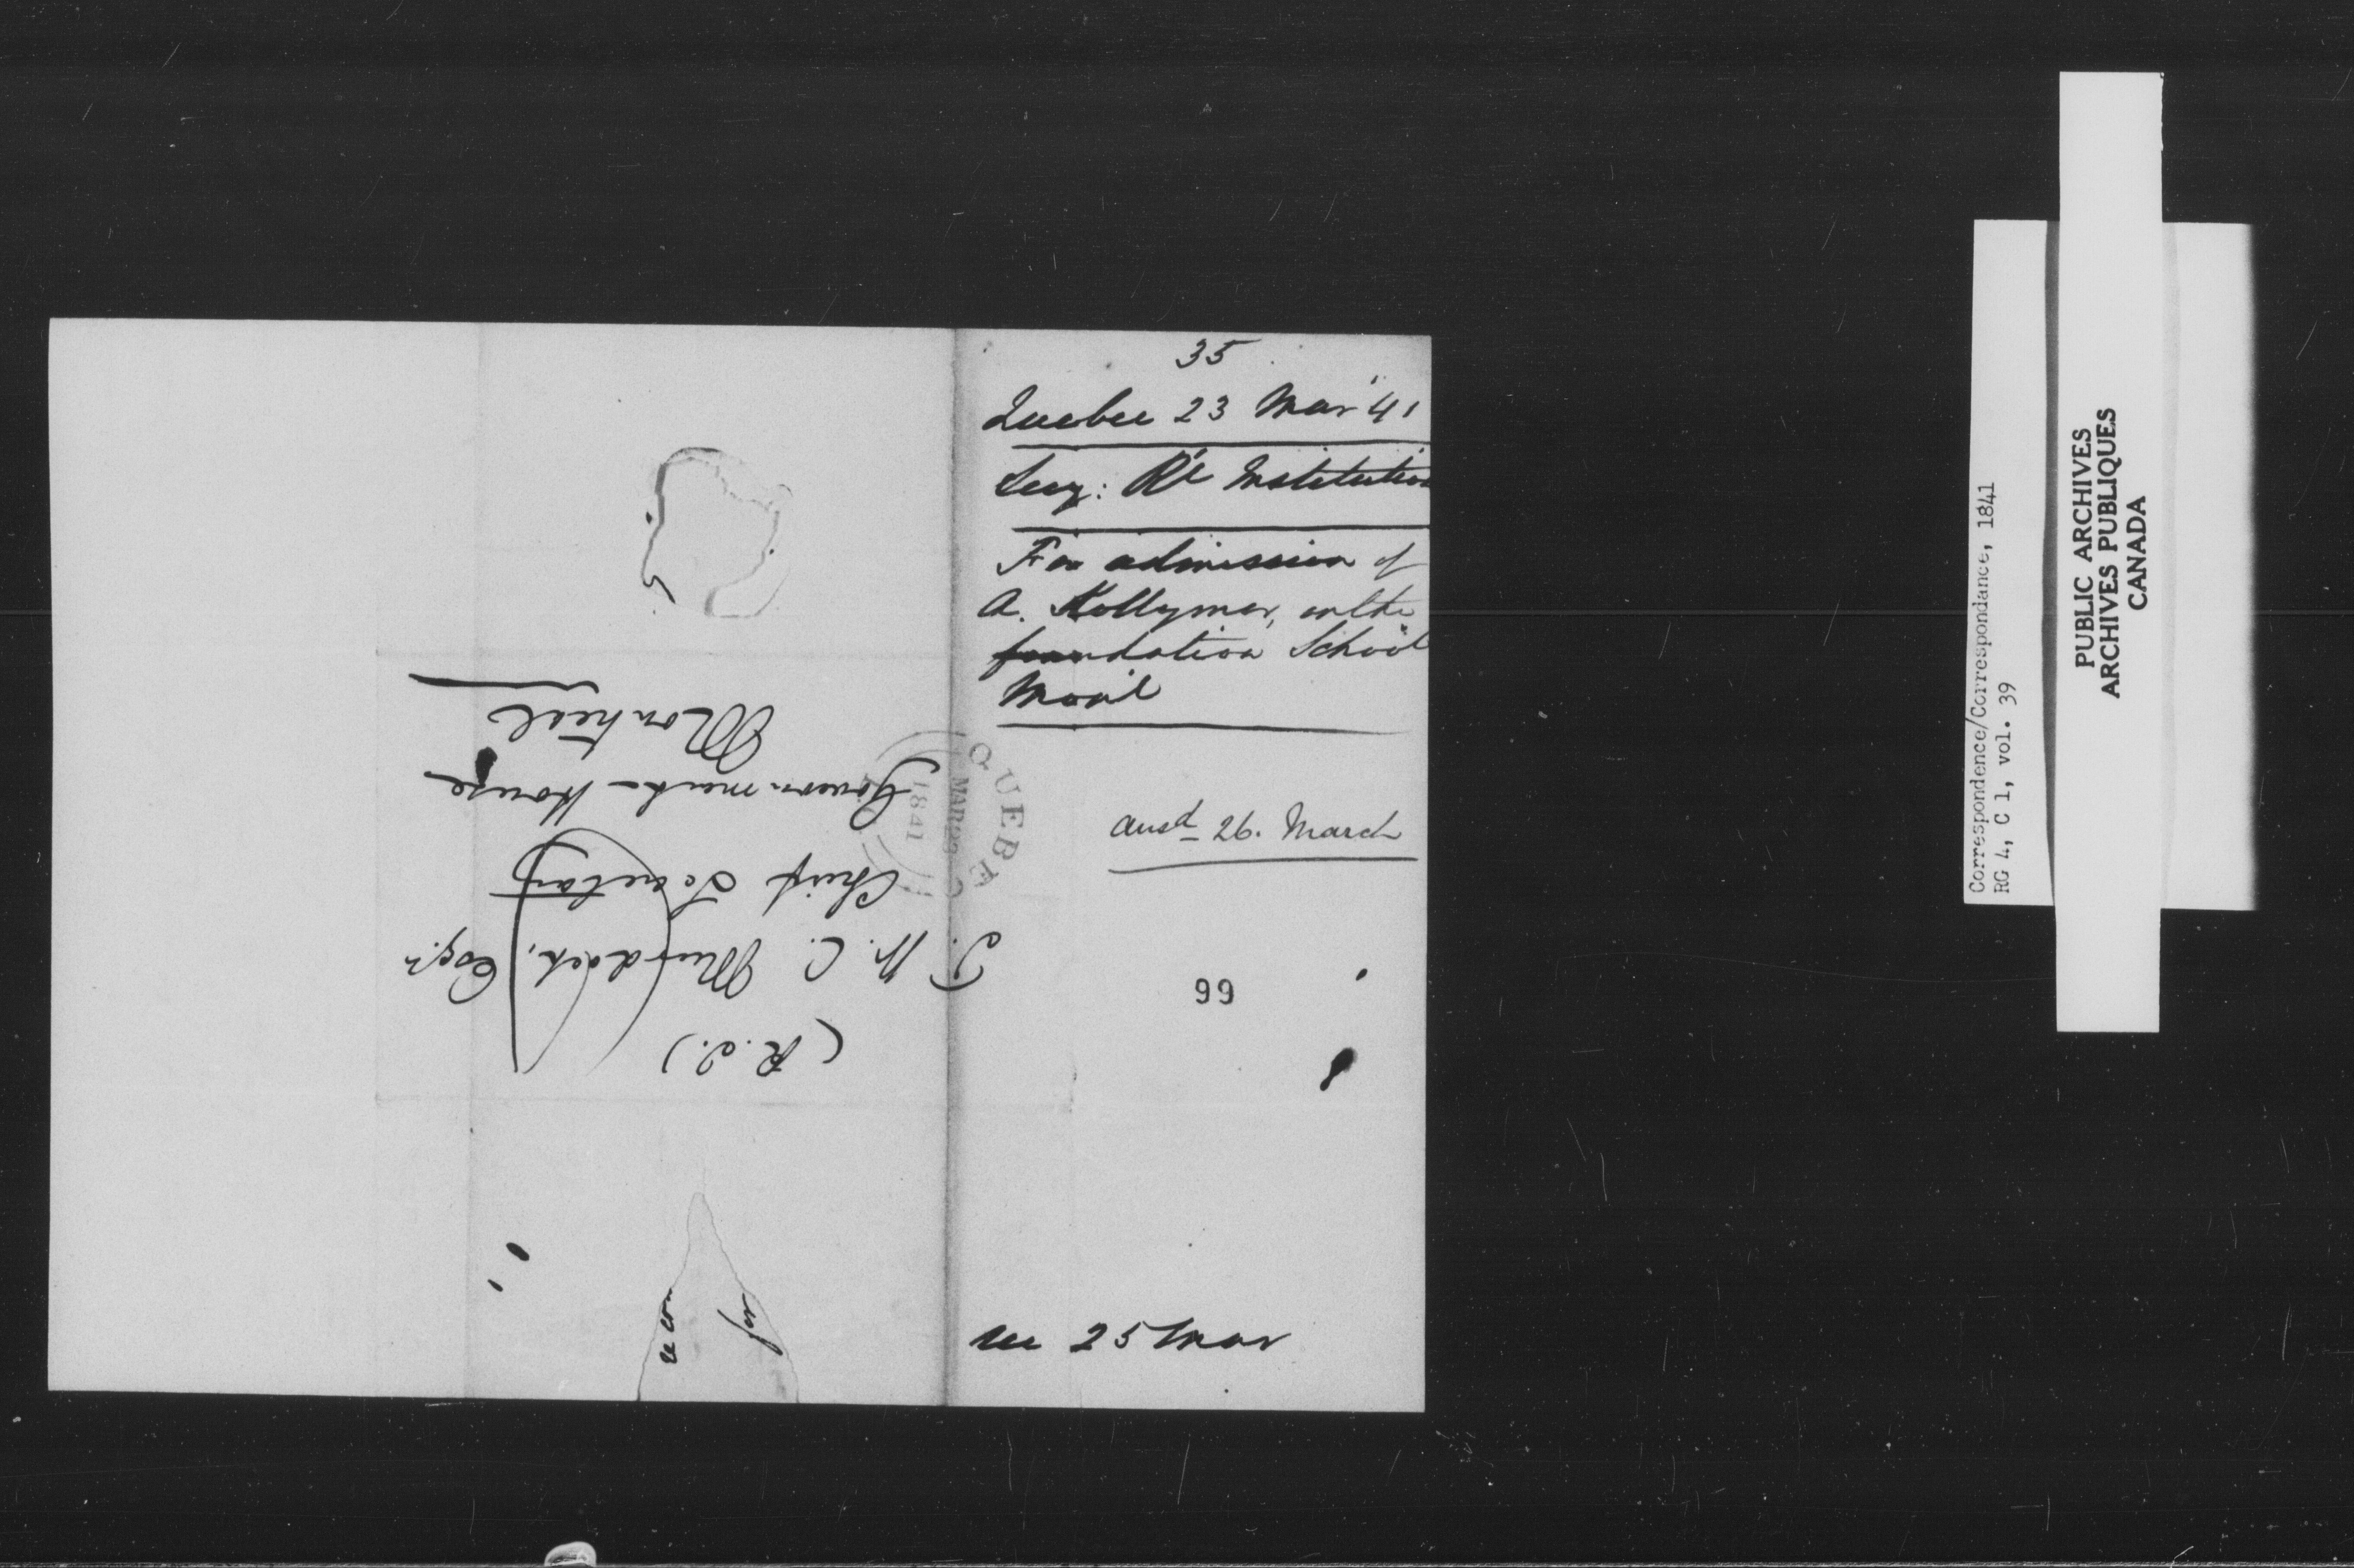 35
Quebec 23 Mar '41
Secy: Rl Institution
For admission of
A. Hollymer, in the
foundation School
Mont'l
ansd 26. March
99
rec 25 Mar
(R.I.)
T. W. C. Murdoch, Esqr
Chief Secretary
Government House
Montreal
QUEBEC
MAR 23
1841
Correspondence/Correspondance, 1841
RG 4, C 1, vol. 39
PUBLIC ARCHIVES
ARCHIVES PUBLIQUES
CANADA